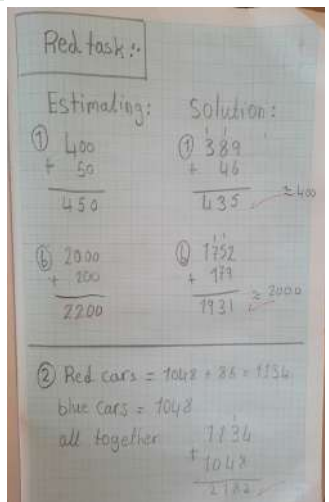 Red task:-
Estimating:
① 400
+ 50
450
ⓑ 2000
+ 200
2200
Solution:
1 1
① 389
+ 46
435 ≈400
1 1
ⓑ 1752
+ 179
1931 ≈ 2000
② Red cars = 1048 + 86 = 1134
blue cars = 1048
all together
1
1134
+ 1048
2182